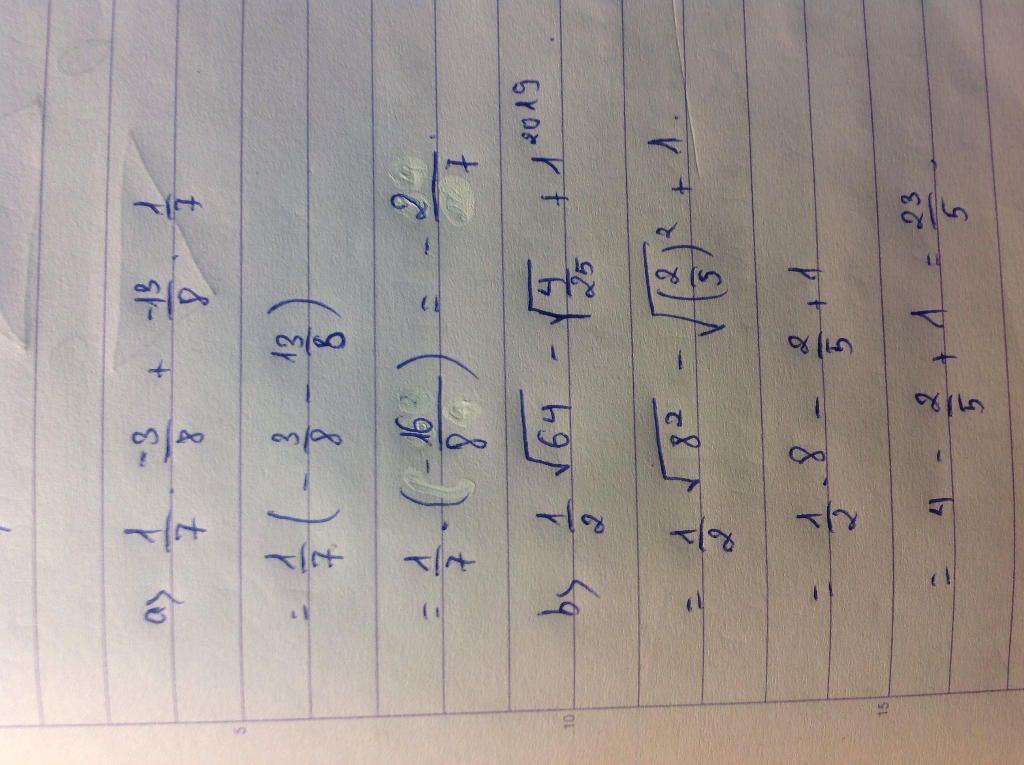 a) 1/7 . -3/8 + -13/8 . 1/7
= 1/7 ( - 3/8 - 13/8 )
= 1/7 . ( -16/8 ) = - 2/7 .
b) 1/2 √64 - √(4/25) + 1^2019
= 1/2 √8² - √(2/5)² + 1 .
= 1/2 . 8 - 2/5 + 1
= 4 - 2/5 + 1 = 23/5 .
5
10
15